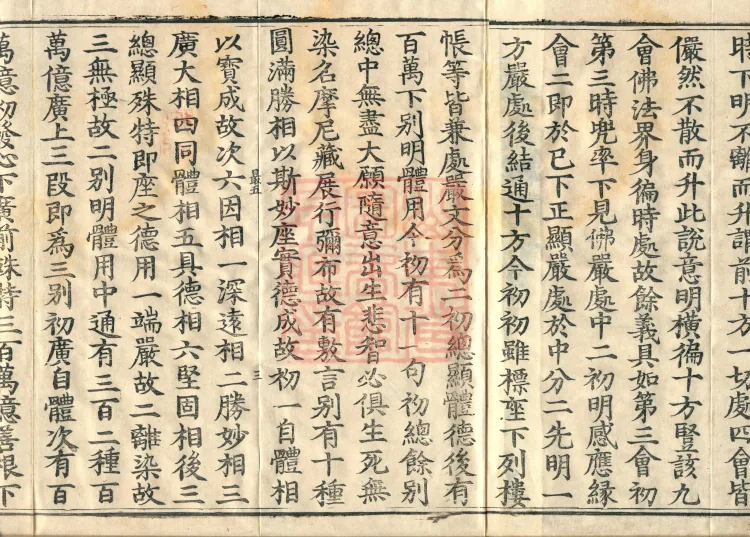 時下明不離而升謂前十方一切處四會皆
儼然不散而升此說意明橫徧十方豎該九
會佛法界身徧時處故餘義具如第三會初
第三時兜率下見佛嚴處中二初明感應緣
會二即於已下正顯嚴處於中分二先明一
方嚴處後結通十方今初初雖標座下列樓
帳等皆兼處嚴文分爲二初總顯體德後有
百萬下別明體用今初有十一句初總餘別
總中無盡大願隨意出生悲智必俱生死無
染名摩尼藏展行彌布故有敷言別有十種
圓滿勝相以斯妙座實德成故初一自體相
以寶成故次六因相一深遠相二勝妙相三
最五
三
廣大相四同體相五具德相六堅固相後三
總顯殊特即座之德用一端嚴故二離染故
三無極故二別明體用中通有三百二種百
萬億廣上三段即爲三別初廣自體次有百
萬億初發心下廣前殊特三百萬億善根下